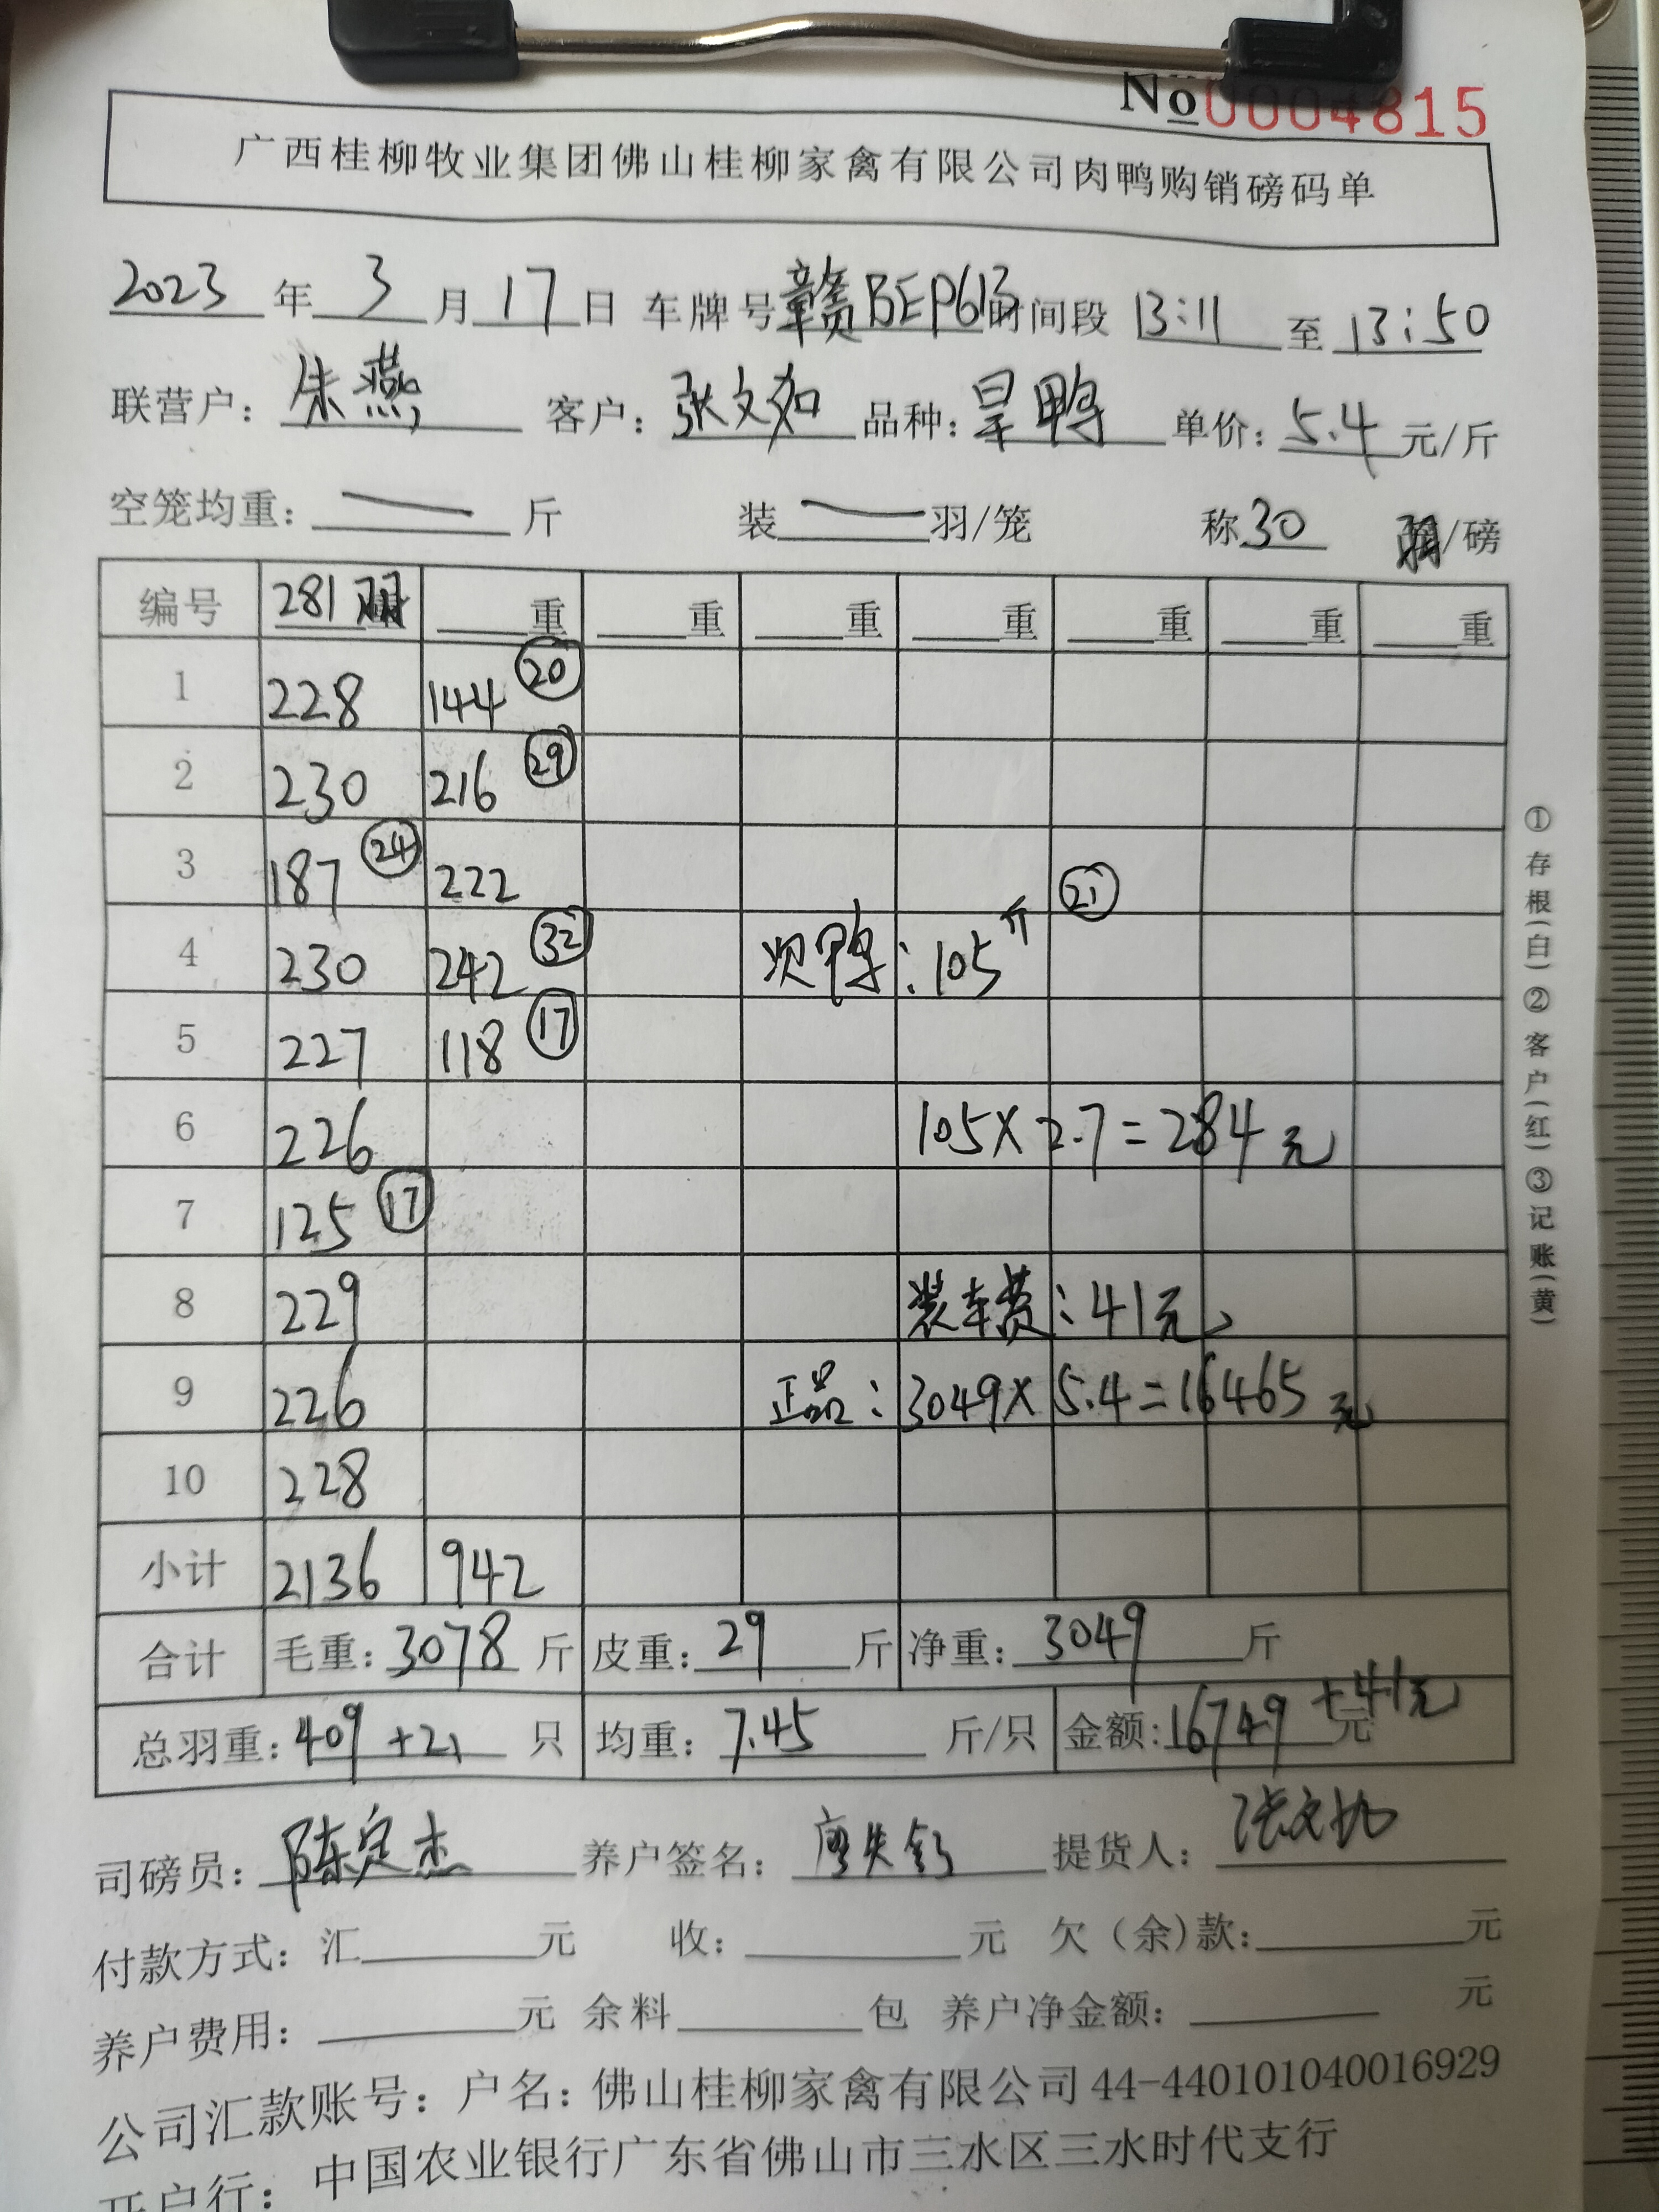 No 0004815
广西桂柳牧业集团佛山桂柳家禽有限公司肉鸭购销磅码单
2023 年 3 月 17 日 车牌号 赣BEP613 时间段 13:11 至 13:50
联营户: 朱燕 客户: 张文如 品种: 旱鸭 单价: 5.4 元/斤
空笼均重: — 斤 装 — 羽/笼 称 30 羽/磅
编号 281羽 重 重 重 重 重 重 重
1 228 144 ⑳
2 230 216 ㉙
3 187 ㉔ 222
4 230 242 ㉜ 次鸭: 105斤 ㉑
5 227 118 ⑰
6 226 105×2.7=284元
7 125 ⑰
8 229 装车费: 41元
9 226 正品: 3049×5.4=16465元
10 228
小计 2136 942
合计 毛重: 3078 斤 皮重: 29 斤 净重: 3049 斤
总羽重: 409+21 只 均重: 7.45 斤/只 金额: 16749 元 +41元
司磅员: 陈定杰 养户签名: 提货人:
付款方式: 汇 元 收: 元 欠(余)款: 元
养户费用: 元 余料 包 养户净金额: 元
公司汇款账号: 户名: 佛山桂柳家禽有限公司 44-440101040016929
开户行: 中国农业银行广东省佛山市三水区三水时代支行
①存根(白)②客户(红)③记账(黄)